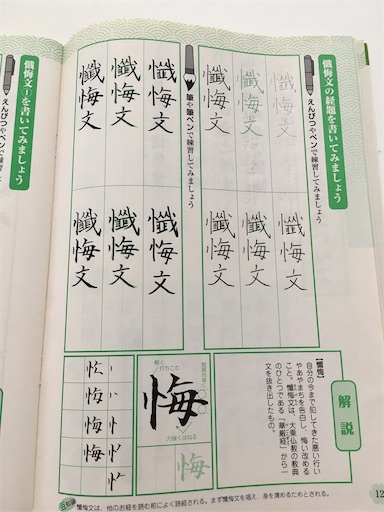 懺悔文の経題を書いてみましょう
えんぴつやペンで練習してみましょう
懺悔文
懺悔文
懺悔文
懺悔文
懺悔文
懺悔文
筆や筆ペンで練習してみましょう
懺悔文
懺悔文
懺悔文
懺悔文
懺悔文
懺悔文
解説
【懺悔】
自分の今まで犯してきた悪い行い
やあやまちを告白し、悔い改める
こと。懺悔文は、大乗仏教の教典
のひとつである『華厳経』から一
文を抜き出したもの。
悔
軽く
打ちこむ
力強くはねる
悔
懺悔文は、他のお経を読む前によく読経される。まず懺悔文を唱え、身を清めるためとされる。
12
を書いてみましょう
えんぴつやペンで練習し